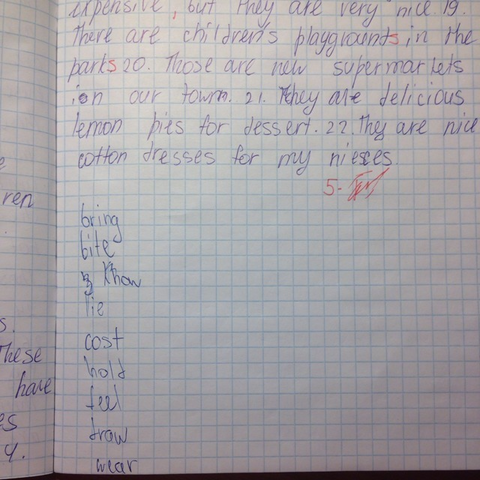 expensive, but they are very nice. 19.
There are children's playgrounds in the
parks 20. Those are new supermarkets
in our town. 21. They are delicious
lemon pies for dessert. 22. They are nice
cotton dresses for my nieces
5-
bring
bite
know
lie
cost
hold
feel
draw
wear
ren
s.
These
have
es
y.